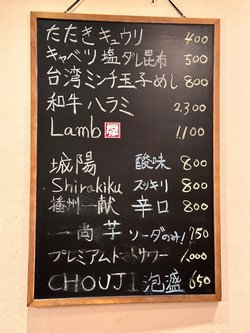 たたきキュウリ 400
キャベツ塩ダレ昆布 500
台湾ミンチ玉子めし 800
和牛ハラミ 2,300
Lamb 1,100
城陽 酸味 800
Shirakiku スッキリ 800
播州一献 辛口 800
一尚 芋 ソーダのみ! 750
プレミアムトマトサワー 1,000
CHOUJI 泡盛 650